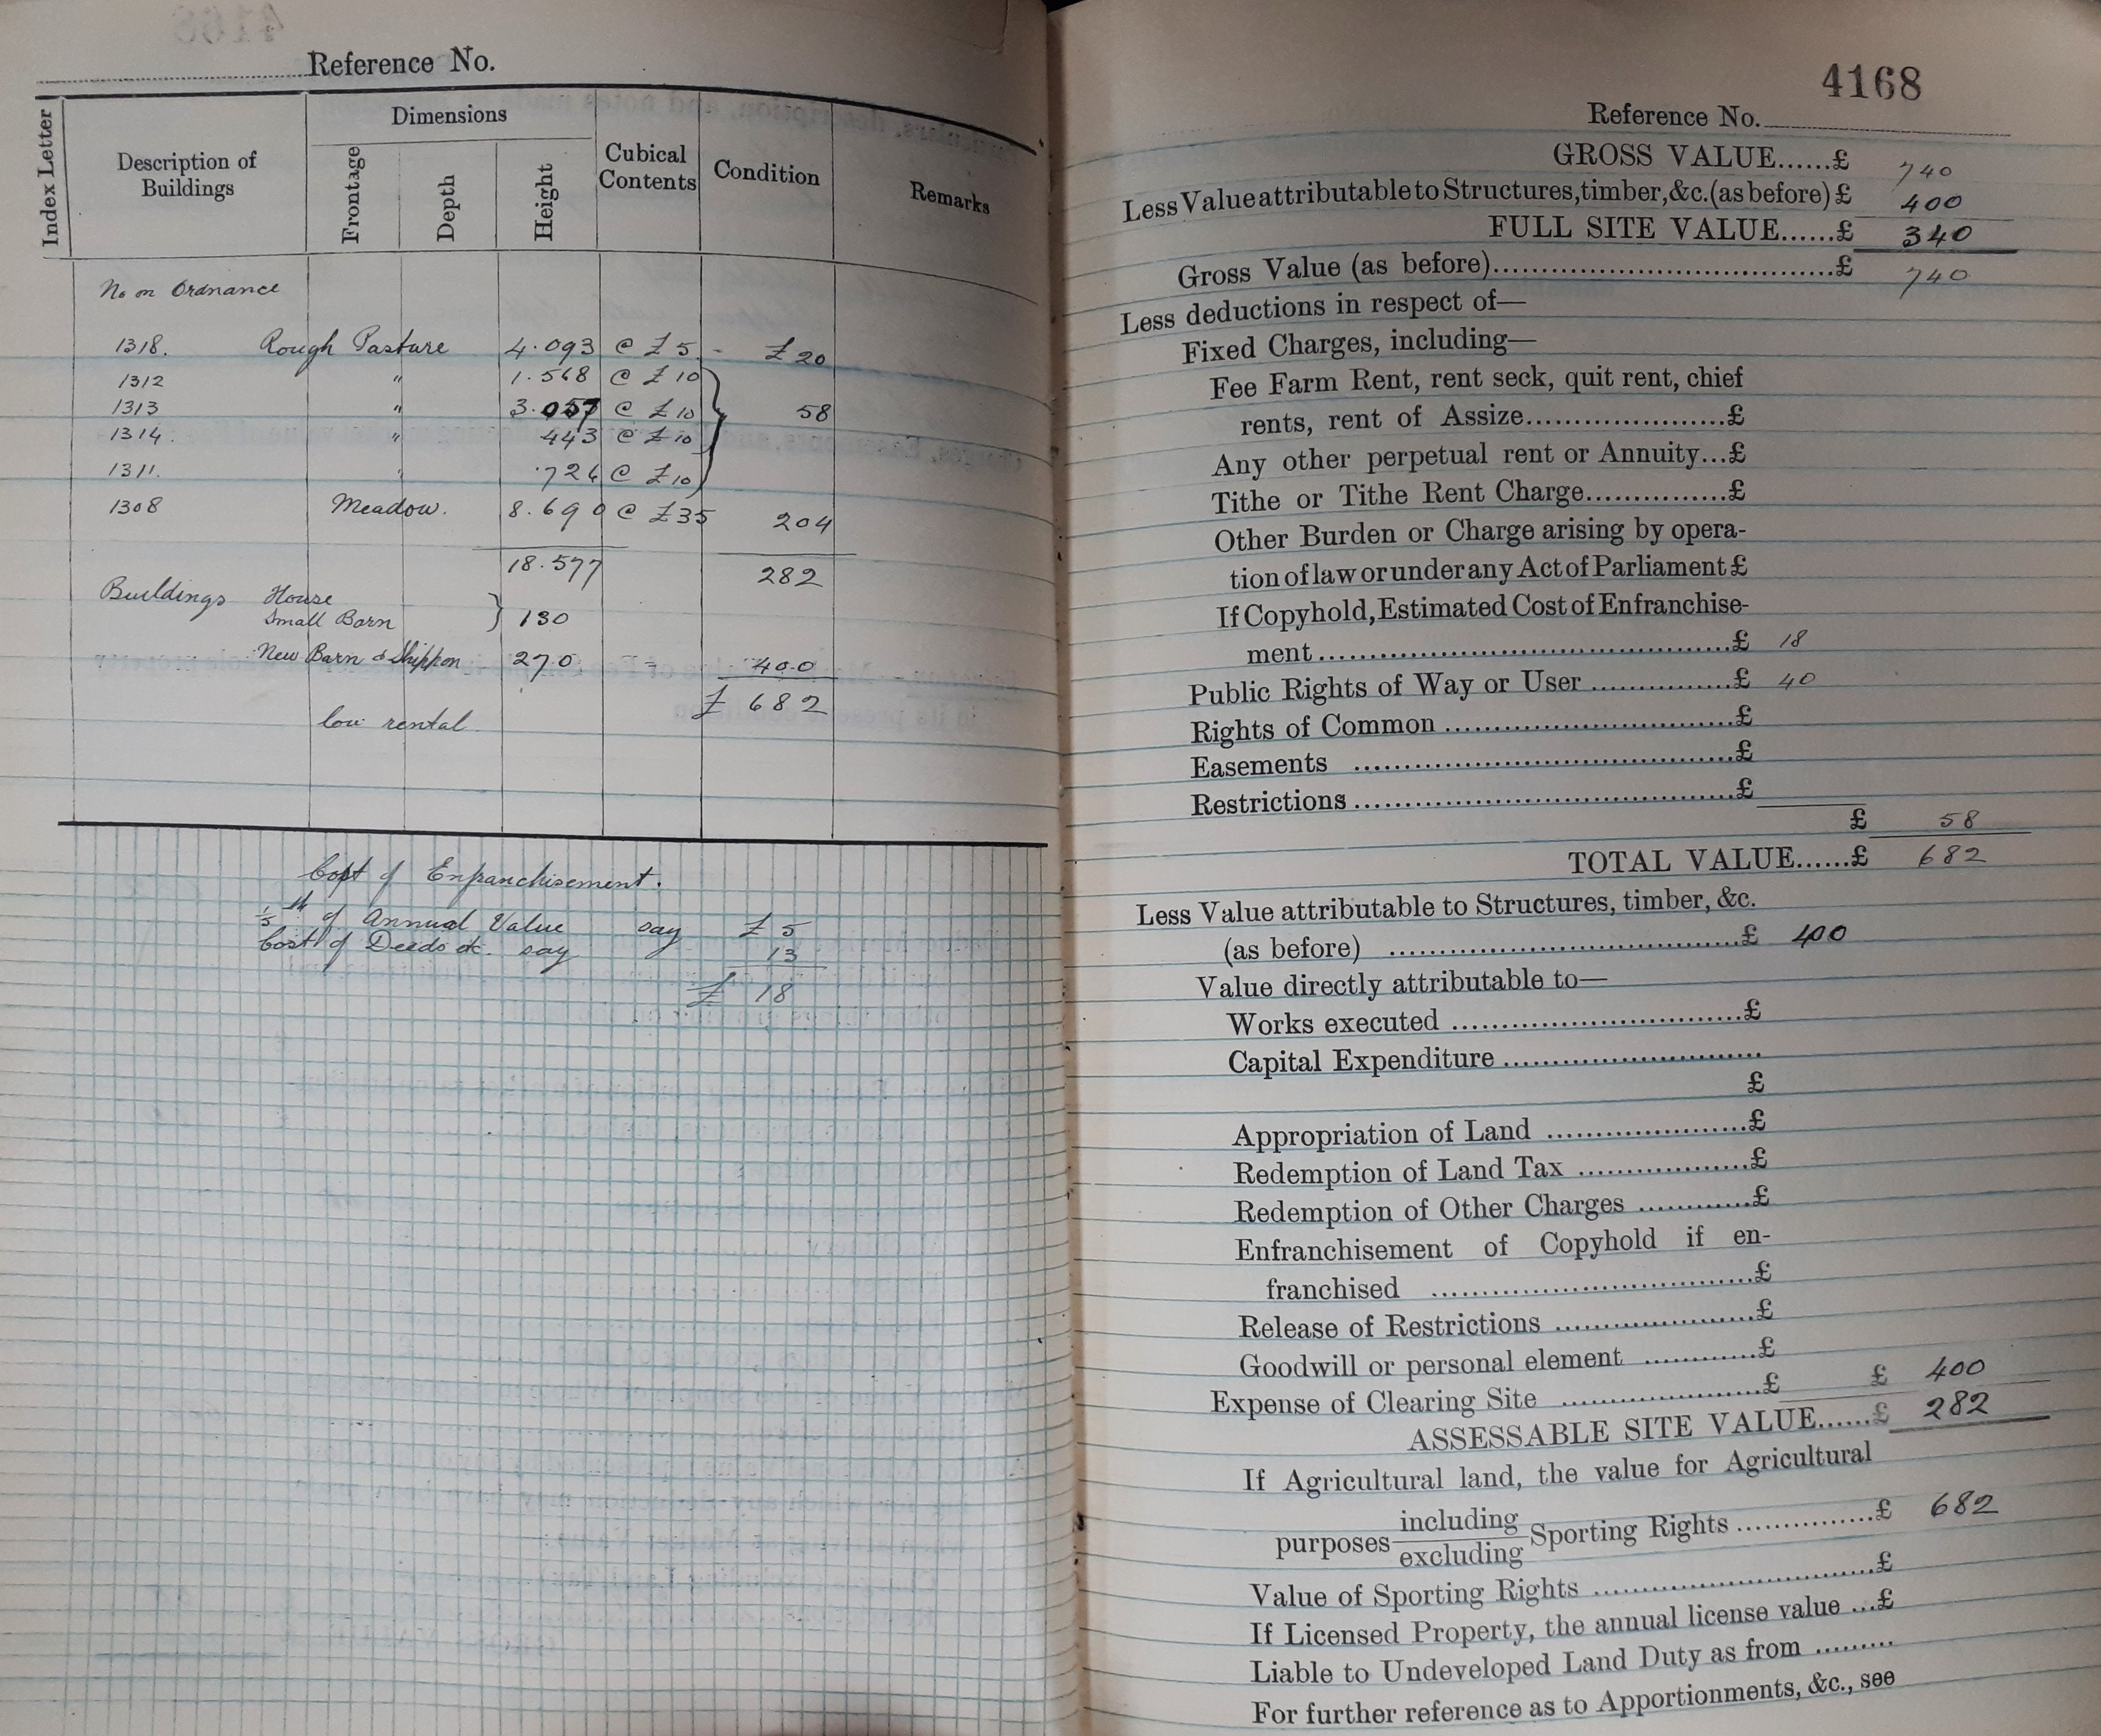 Reference No.
Index Letter
Description of Buildings
Dimensions
Frontage
Depth
Height
Cubical Contents
Condition
Remarks
No on Ordnance
1318. Rough Pasture 4.093 @ £5 - £20
1312 " 1.568 @ £10
1313 " 3.057 @ £10 58
1314. " 443 @ £10
1311. " .726 @ £10
1308 Meadow. 8.690 @ £35 204
18.577 282
Buildings House
Small Barn } 130
New Barn & Shippon 270 400
£ 682
low rental
Cost of Enfranchisement.
1/5th of Annual Value say £5
Cost of Deeds etc. say 13
£ 18
4168
Reference No.
GROSS VALUE......£ 740
Less Value attributable to Structures, timber, &c. (as before) £ 400
FULL SITE VALUE......£ 340
Gross Value (as before)...£ 740
Less deductions in respect of—
Fixed Charges, including—
Fee Farm Rent, rent seck, quit rent, chief
rents, rent of Assize...£
Any other perpetual rent or Annuity...£
Tithe or Tithe Rent Charge...£
Other Burden or Charge arising by opera-
tion of law or under any Act of Parliament £
If Copyhold, Estimated Cost of Enfranchise-
ment...£ 18
Public Rights of Way or User...£ 40
Rights of Common...£
Easements...£
Restrictions...£
£ 58
TOTAL VALUE......£ 682
Less Value attributable to Structures, timber, &c.
(as before)...£ 400
Value directly attributable to—
Works executed...£
Capital Expenditure...
£
Appropriation of Land...£
Redemption of Land Tax...£
Redemption of Other Charges...£
Enfranchisement of Copyhold if en-
franchised...£
Release of Restrictions...£
Goodwill or personal element...£
Expense of Clearing Site...£ £ 400
ASSESSABLE SITE VALUE......£ 282
If Agricultural land, the value for Agricultural
purposes including/excluding Sporting Rights...£ 682
Value of Sporting Rights...£
If Licensed Property, the annual license value ...£
Liable to Undeveloped Land Duty as from .........
For further reference as to Apportionments, &c., see